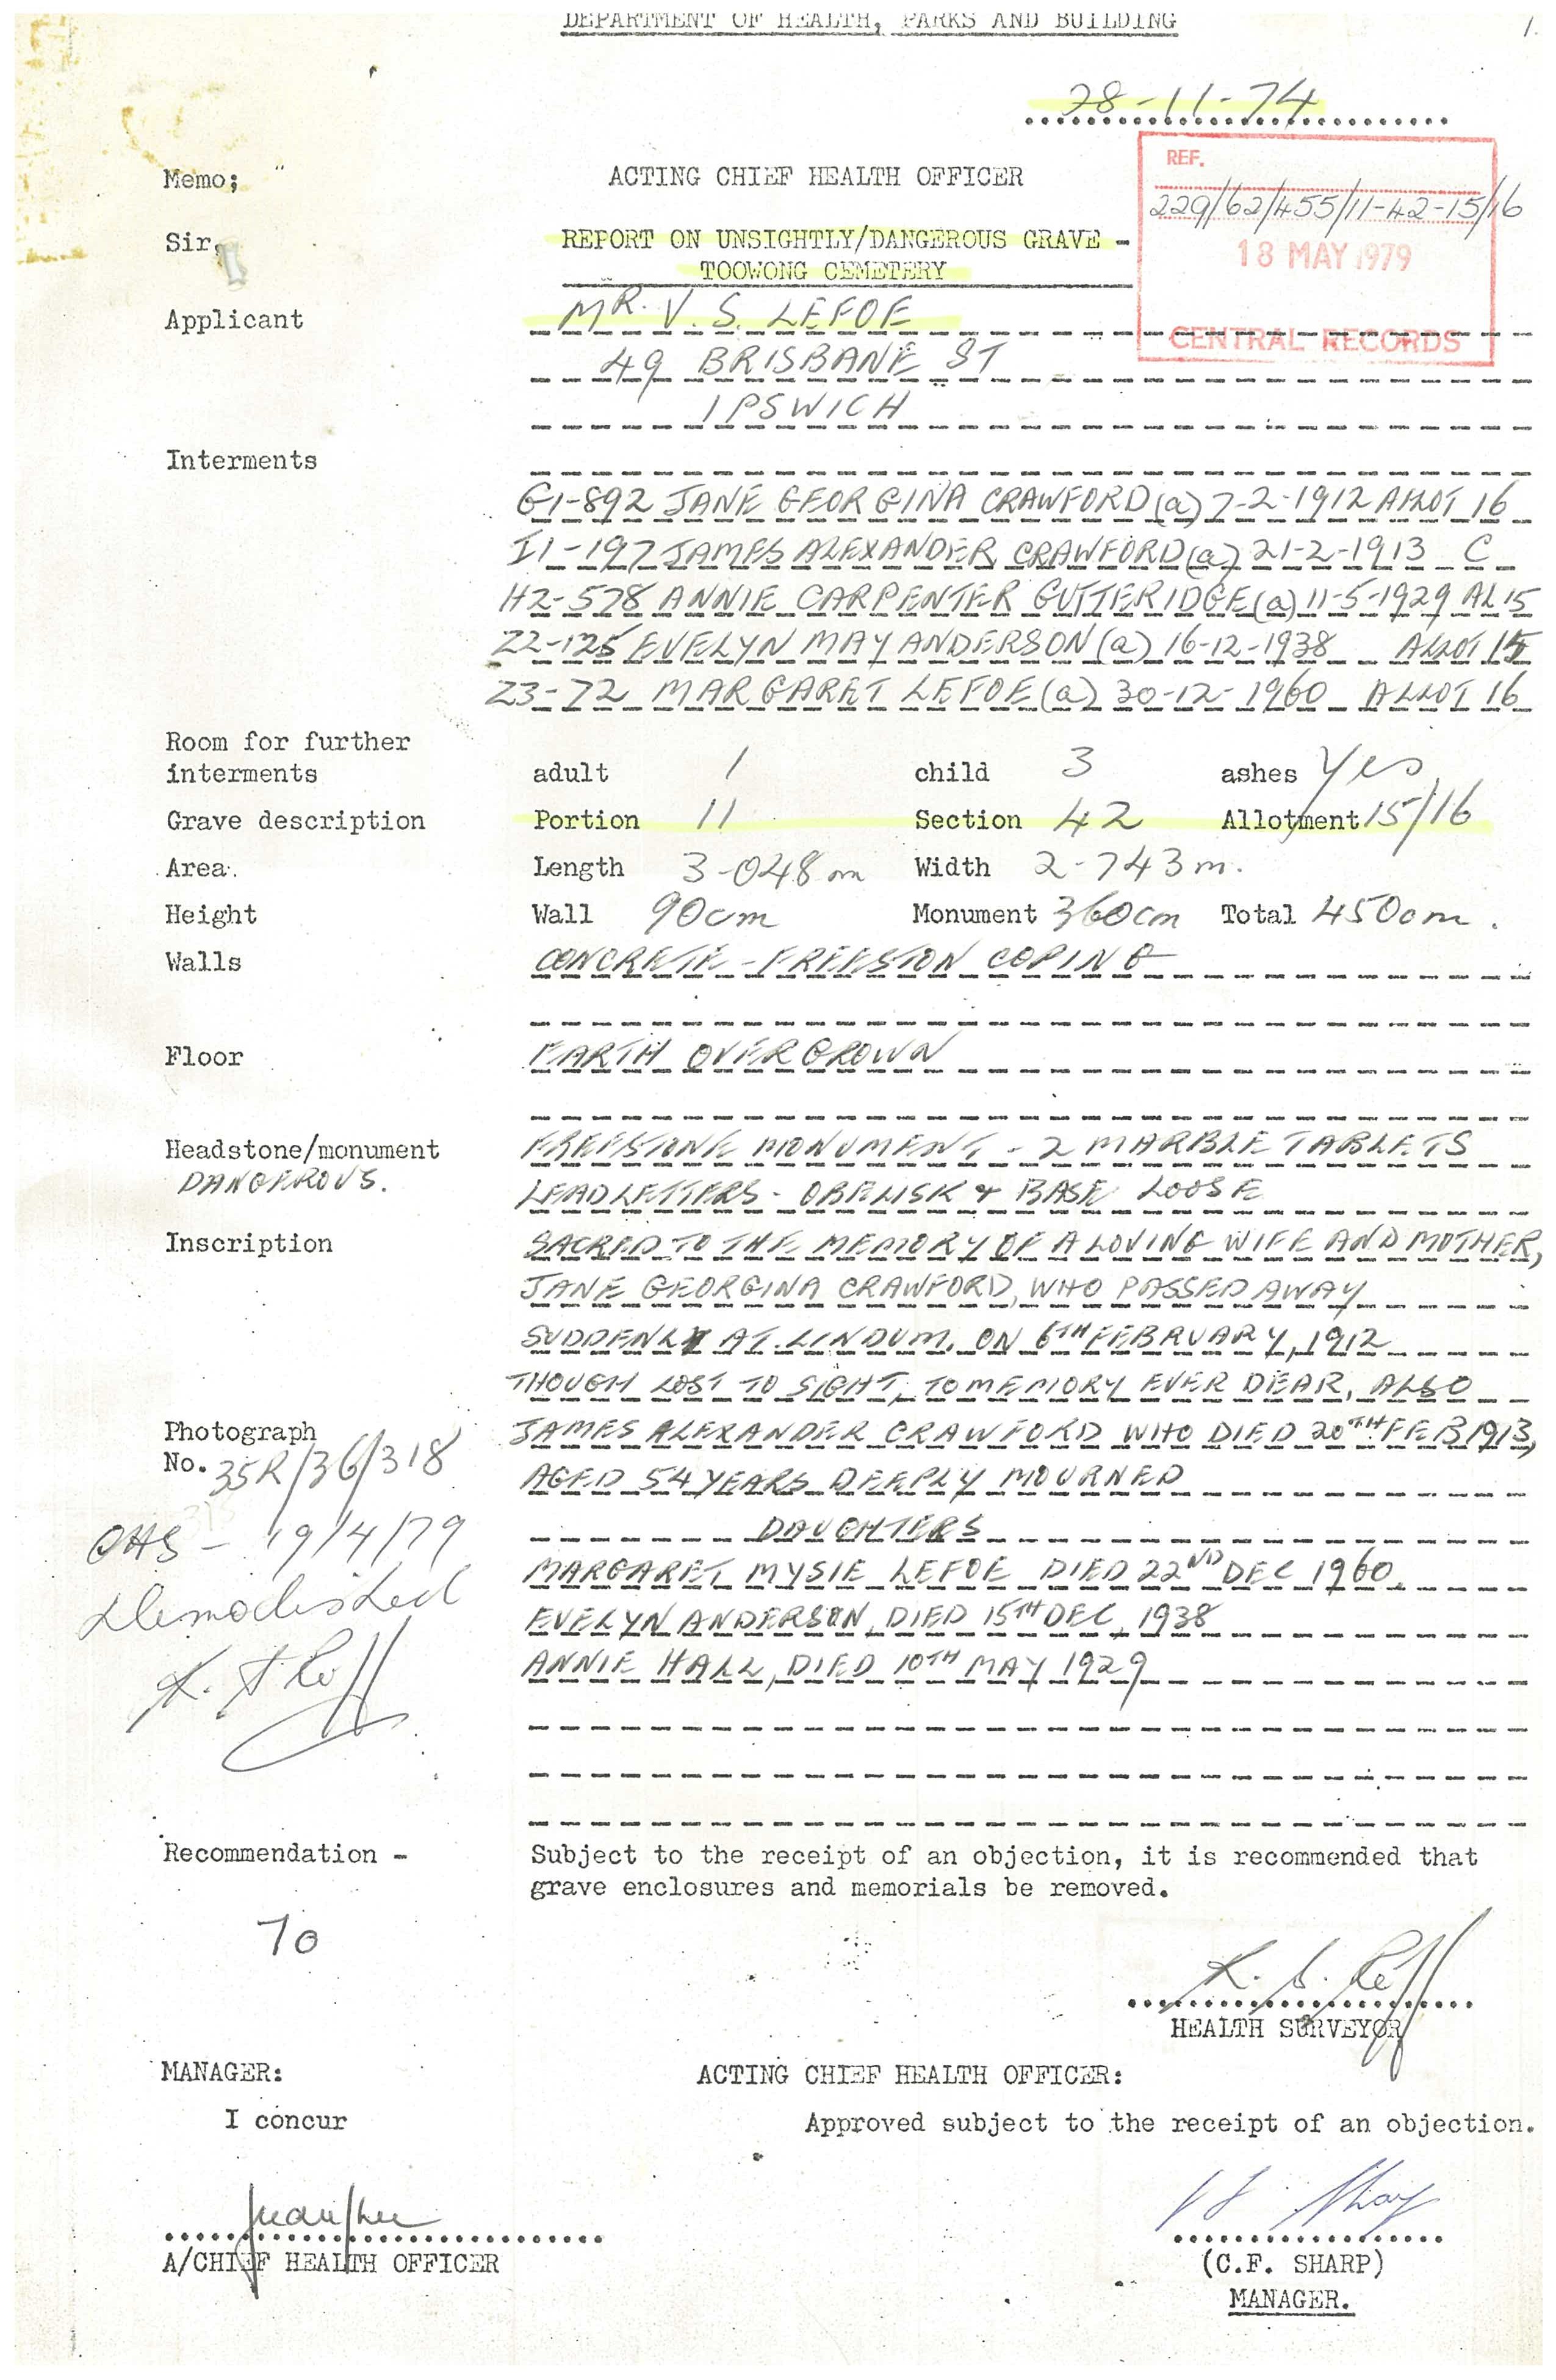 DEPARTMENT OF HEALTH, PARKS AND BUILDING
1.
28-11-74
Memo;
ACTING CHIEF HEALTH OFFICER
REF.
229/62/455/11-42-15/16
Sir,
REPORT ON UNSIGHTLY/DANGEROUS GRAVE -
TOOWONG CEMETERY
18 MAY 1979
CENTRAL RECORDS
Applicant
MR. V. S. LEFOE
49 BRISBANE ST
IPSWICH
Interments
G1-892 JANE GEORGINA CRAWFORD (a) 7-2-1912 ALLOT 16
I1-197 JAMES ALEXANDER CRAWFORD (a) 21-2-1913 C
H2-578 ANNIE CARPENTER GUTTERIDGE (a) 11-5-1929 AL 15
Z2-125 EVELYN MAY ANDERSON (a) 16-12-1938 ALLOT 15
Z3-72 MARGARET LEFOE (a) 30-12-1960 ALLOT 16
Room for further
interments adult 1 child 3 ashes Yes
Grave description Portion 11 Section 42 Allotment 15/16
Area. Length 3-048 m Width 2-743 m.
Height Wall 90cm Monument 360cm Total 450cm.
Walls CONCRETE - FREESTON COPING
Floor EARTH OVERGROWN
Headstone/monument FREESTONE MONUMENT - 2 MARBLE TABLETS
DANGEROUS. LEAD LETTERS - OBELISK & BASE LOOSE
Inscription SACRED TO THE MEMORY OF A LOVING WIFE AND MOTHER,
JANE GEORGINA CRAWFORD, WHO PASSED AWAY
SUDDENLY AT LINDUM, ON 6TH FEBRUARY, 1912
THOUGH LOST TO SIGHT, TO MEMORY EVER DEAR, ALSO
Photograph JAMES ALEXANDER CRAWFORD WHO DIED 20TH FEB 1913,
No. 35R/36/318 AGED 54 YEARS DEEPLY MOURNED
DAUGHTERS
OHS - 19/4/79
MARGARET MYSIE LEFOE DIED 22ND DEC 1960,
Demolished
EVELYN ANDERSON, DIED 15TH DEC, 1938
ANNIE HALL, DIED 10TH MAY 1929
Recommendation - Subject to the receipt of an objection, it is recommended that
grave enclosures and memorials be removed.
70
HEALTH SURVEYOR
MANAGER: ACTING CHIEF HEALTH OFFICER:
I concur Approved subject to the receipt of an objection.
A/CHIEF HEALTH OFFICER (C.F. SHARP)
MANAGER.